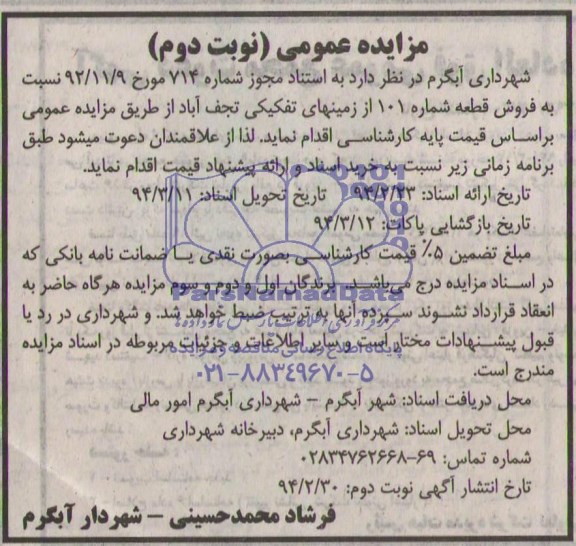 مزایده عمومی (نوبت دوم)
شهرداری آبگرم در نظر دارد به استناد مجوز شماره ۷۱۴ مورخ ۹۲/۱۱/۹ نسبت
به فروش قطعه شماره ۱۰۱ از زمینهای تفکیکی تجف آباد از طریق مزایده عمومی
براساس قیمت پایه کارشناسی اقدام نماید. لذا از علاقمندان دعوت میشود طبق
برنامه زمانی زیر نسبت به خرید اسناد و ارائه پیشنهاد قیمت اقدام نماید.
تاریخ ارائه اسناد: ۹۴/۲/۲۳ تاریخ تحویل اسناد: ۹۴/۳/۱۱
تاریخ بازگشایی پاکات: ۹۴/۳/۱۲
مبلغ تضمین ۵٪ قیمت کارشناسی بصورت نقدی یا ضمانت نامه بانکی که
در اسناد مزایده درج می‌باشد. برندگان اول و دوم و سوم مزایده هرگاه حاضر به
ParsNamadData
انعقاد قرارداد نشوند سپرده آنها به ترتیب ضبط خواهد شد. و شهرداری در رد یا
قبول پیشنهادات مختار است و سایر اطلاعات و جزئیات مربوطه در اسناد مزایده
پایگاه اطلاع رسانی مناقصه و مزایده
مندرج است.
۰۲۱-۸۸۳۴۹۶۷۰-۵
محل دریافت اسناد: شهر آبگرم – شهرداری آبگرم امور مالی
محل تحویل اسناد: شهرداری آبگرم، دبیرخانه شهرداری
شماره تماس: ۶۹-۰۲۸۳۴۷۶۲۶۶۸
تارخ انتشار آگهی نوبت دوم: ۹۴/۲/۳۰
فرشاد محمدحسینی – شهردار آبگرم